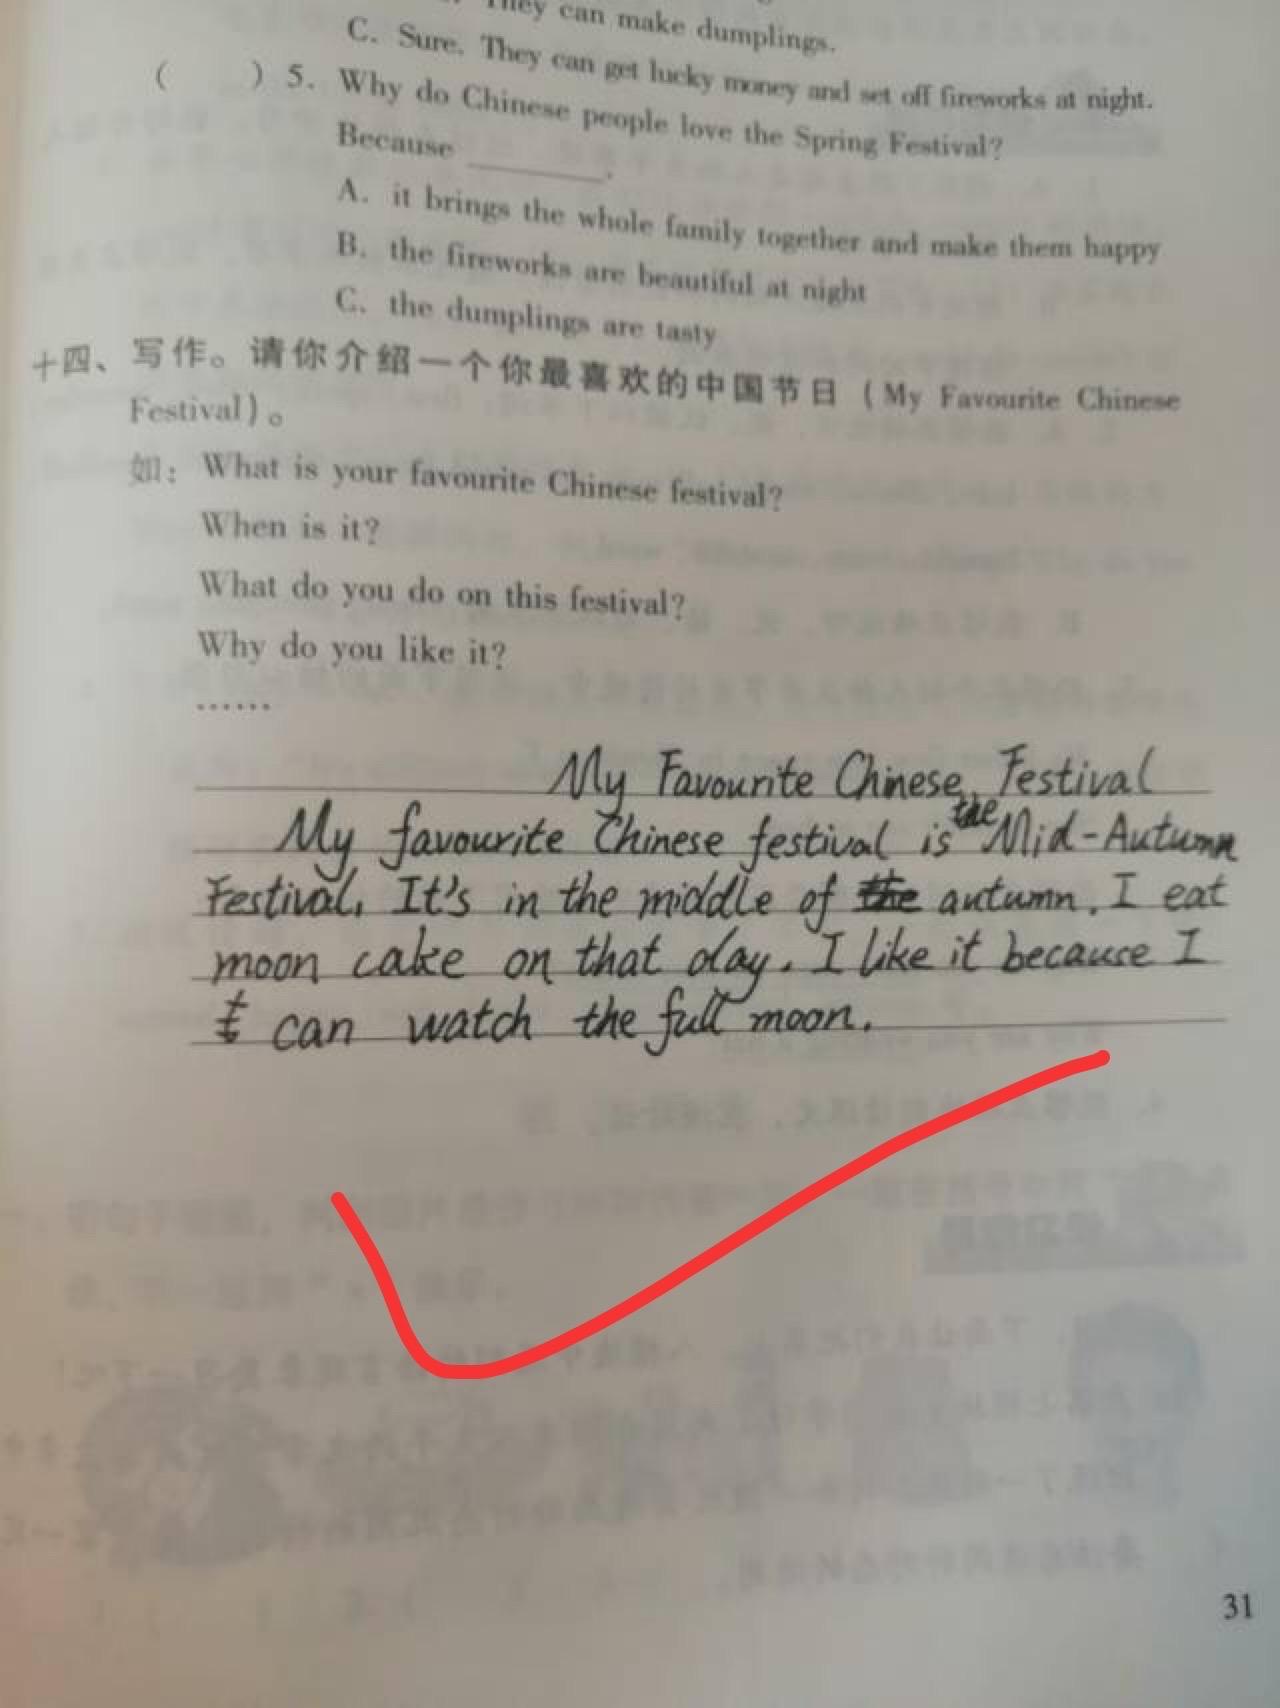 They can make dumplings.
C. Sure. They can get lucky money and set off fireworks at night.
( ) 5. Why do Chinese people love the Spring Festival?
Because ________.
A. it brings the whole family together and make them happy
B. the fireworks are beautiful at night
C. the dumplings are tasty
十四、写作。请你介绍一个你最喜欢的中国节日（My Favourite Chinese
Festival）。
如：What is your favourite Chinese festival?
When is it?
What do you do on this festival?
Why do you like it?
……
My Favourite Chinese Festival
My favourite Chinese festival is the Mid-Autumn
Festival. It's in the middle of autumn. I eat
moon cake on that day. I like it because I
can watch the full moon.
31